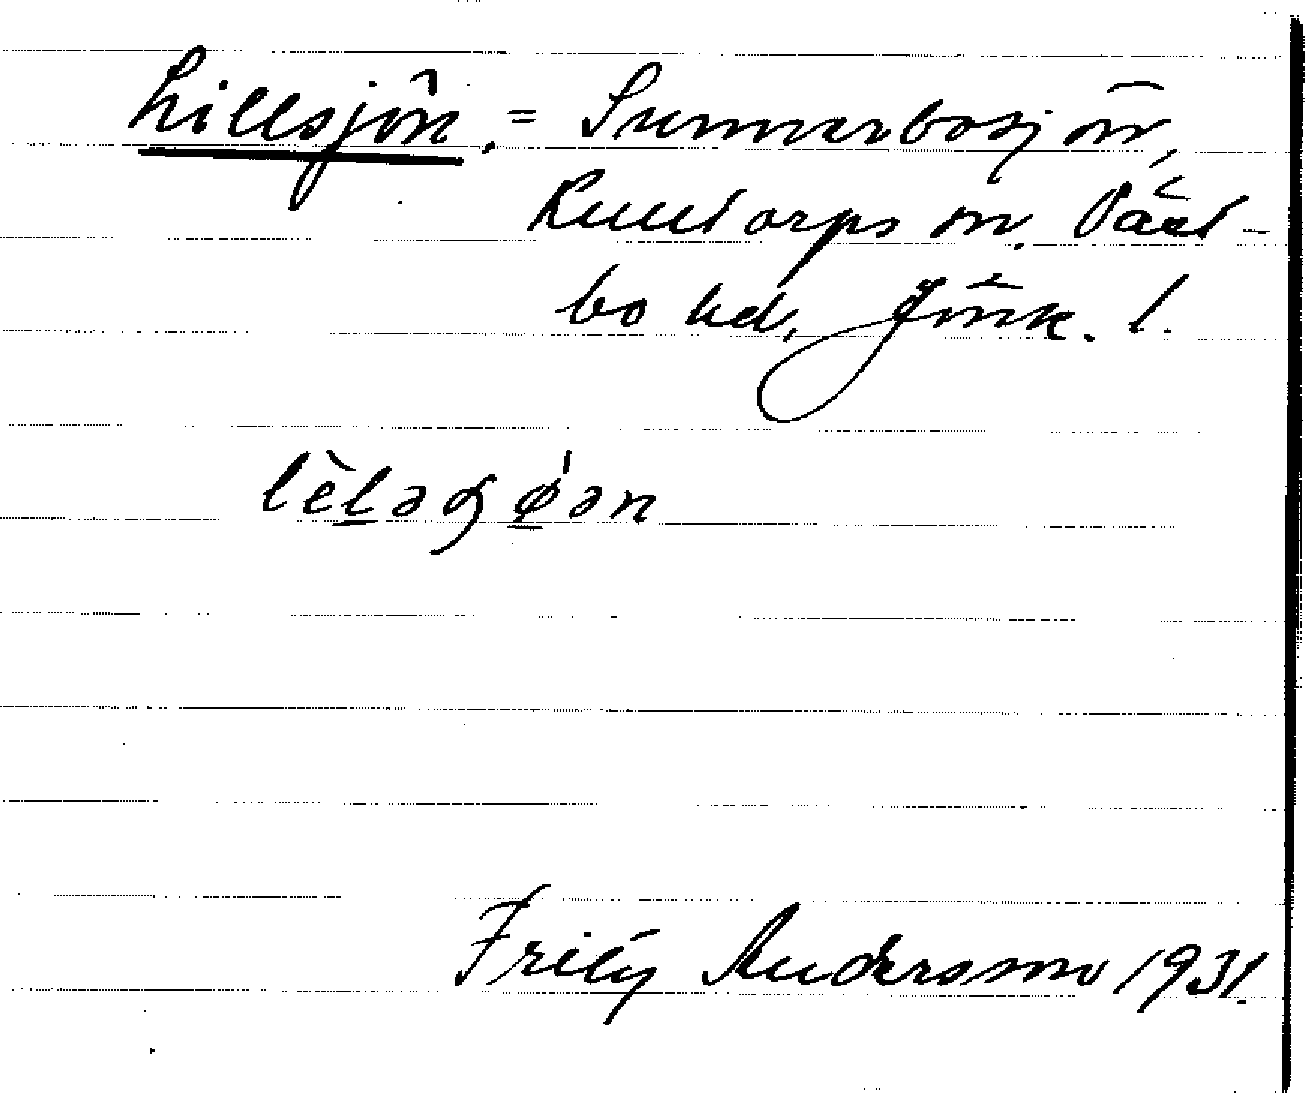 Lillsjön, = Sunnerbosjön,
Kulltorps sn. Väst-
bo hd, Jönk. l.
lèləɧø̍ən
Fritz Andersson 1931.